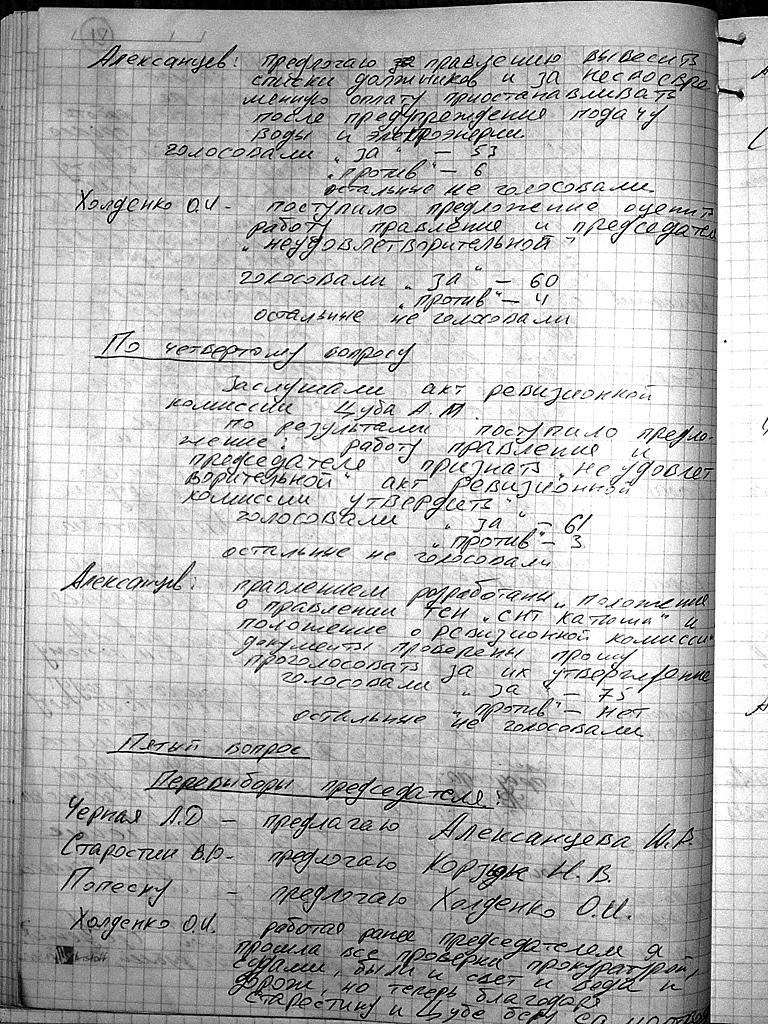 Алексанцев: предлогаю правлению вывесить
списки должников и за несвоевре-
менную оплату приостанавливать
после предупреждения подачу
воды и электроэнергии
голосовали „за“ – 53
„против“ – 6
остальные не голосовали.
Холденко О.И – поступило предложение оценить
работу правления и председателя
„неудовлетворительной“
голосовали „за“ – 60
„против“ – 4
остальные не голосовали
По четвертому вопросу
Заслушали акт ревизионной
комиссии Цуба А.М.
По результатам поступило предло-
жение: работу правления и
председателя признать „неудовлет
ворительной“ акт ревизионной
комиссии утвердить
голосовали „за“ – 61
„против“ – 3
остальные не голосовали
Алексанцев: правлением розработаны „положение
о правлении ТСН „СНТ Катюша“ и
положение о ревизионной комиссии“
документы проверены прошу
проголосовать за их утверждение
голосовали „за“ – 75
„против“ – нет
остальные не голосовали
Пятый вопрос
Перевыборы председателя:
Черная Л.Д – предлагаю Алексанцева
Старостин В.Ю – предлогаю Корзун Н.В.
Попеску – предлогаю Холденко О.И.
Холденко О.И. работая ранее председателем я
прошла все проверки прокуратурой,
судами, были и свет и вода и
дорож, но теперь благодаря
Старостину и Цубе